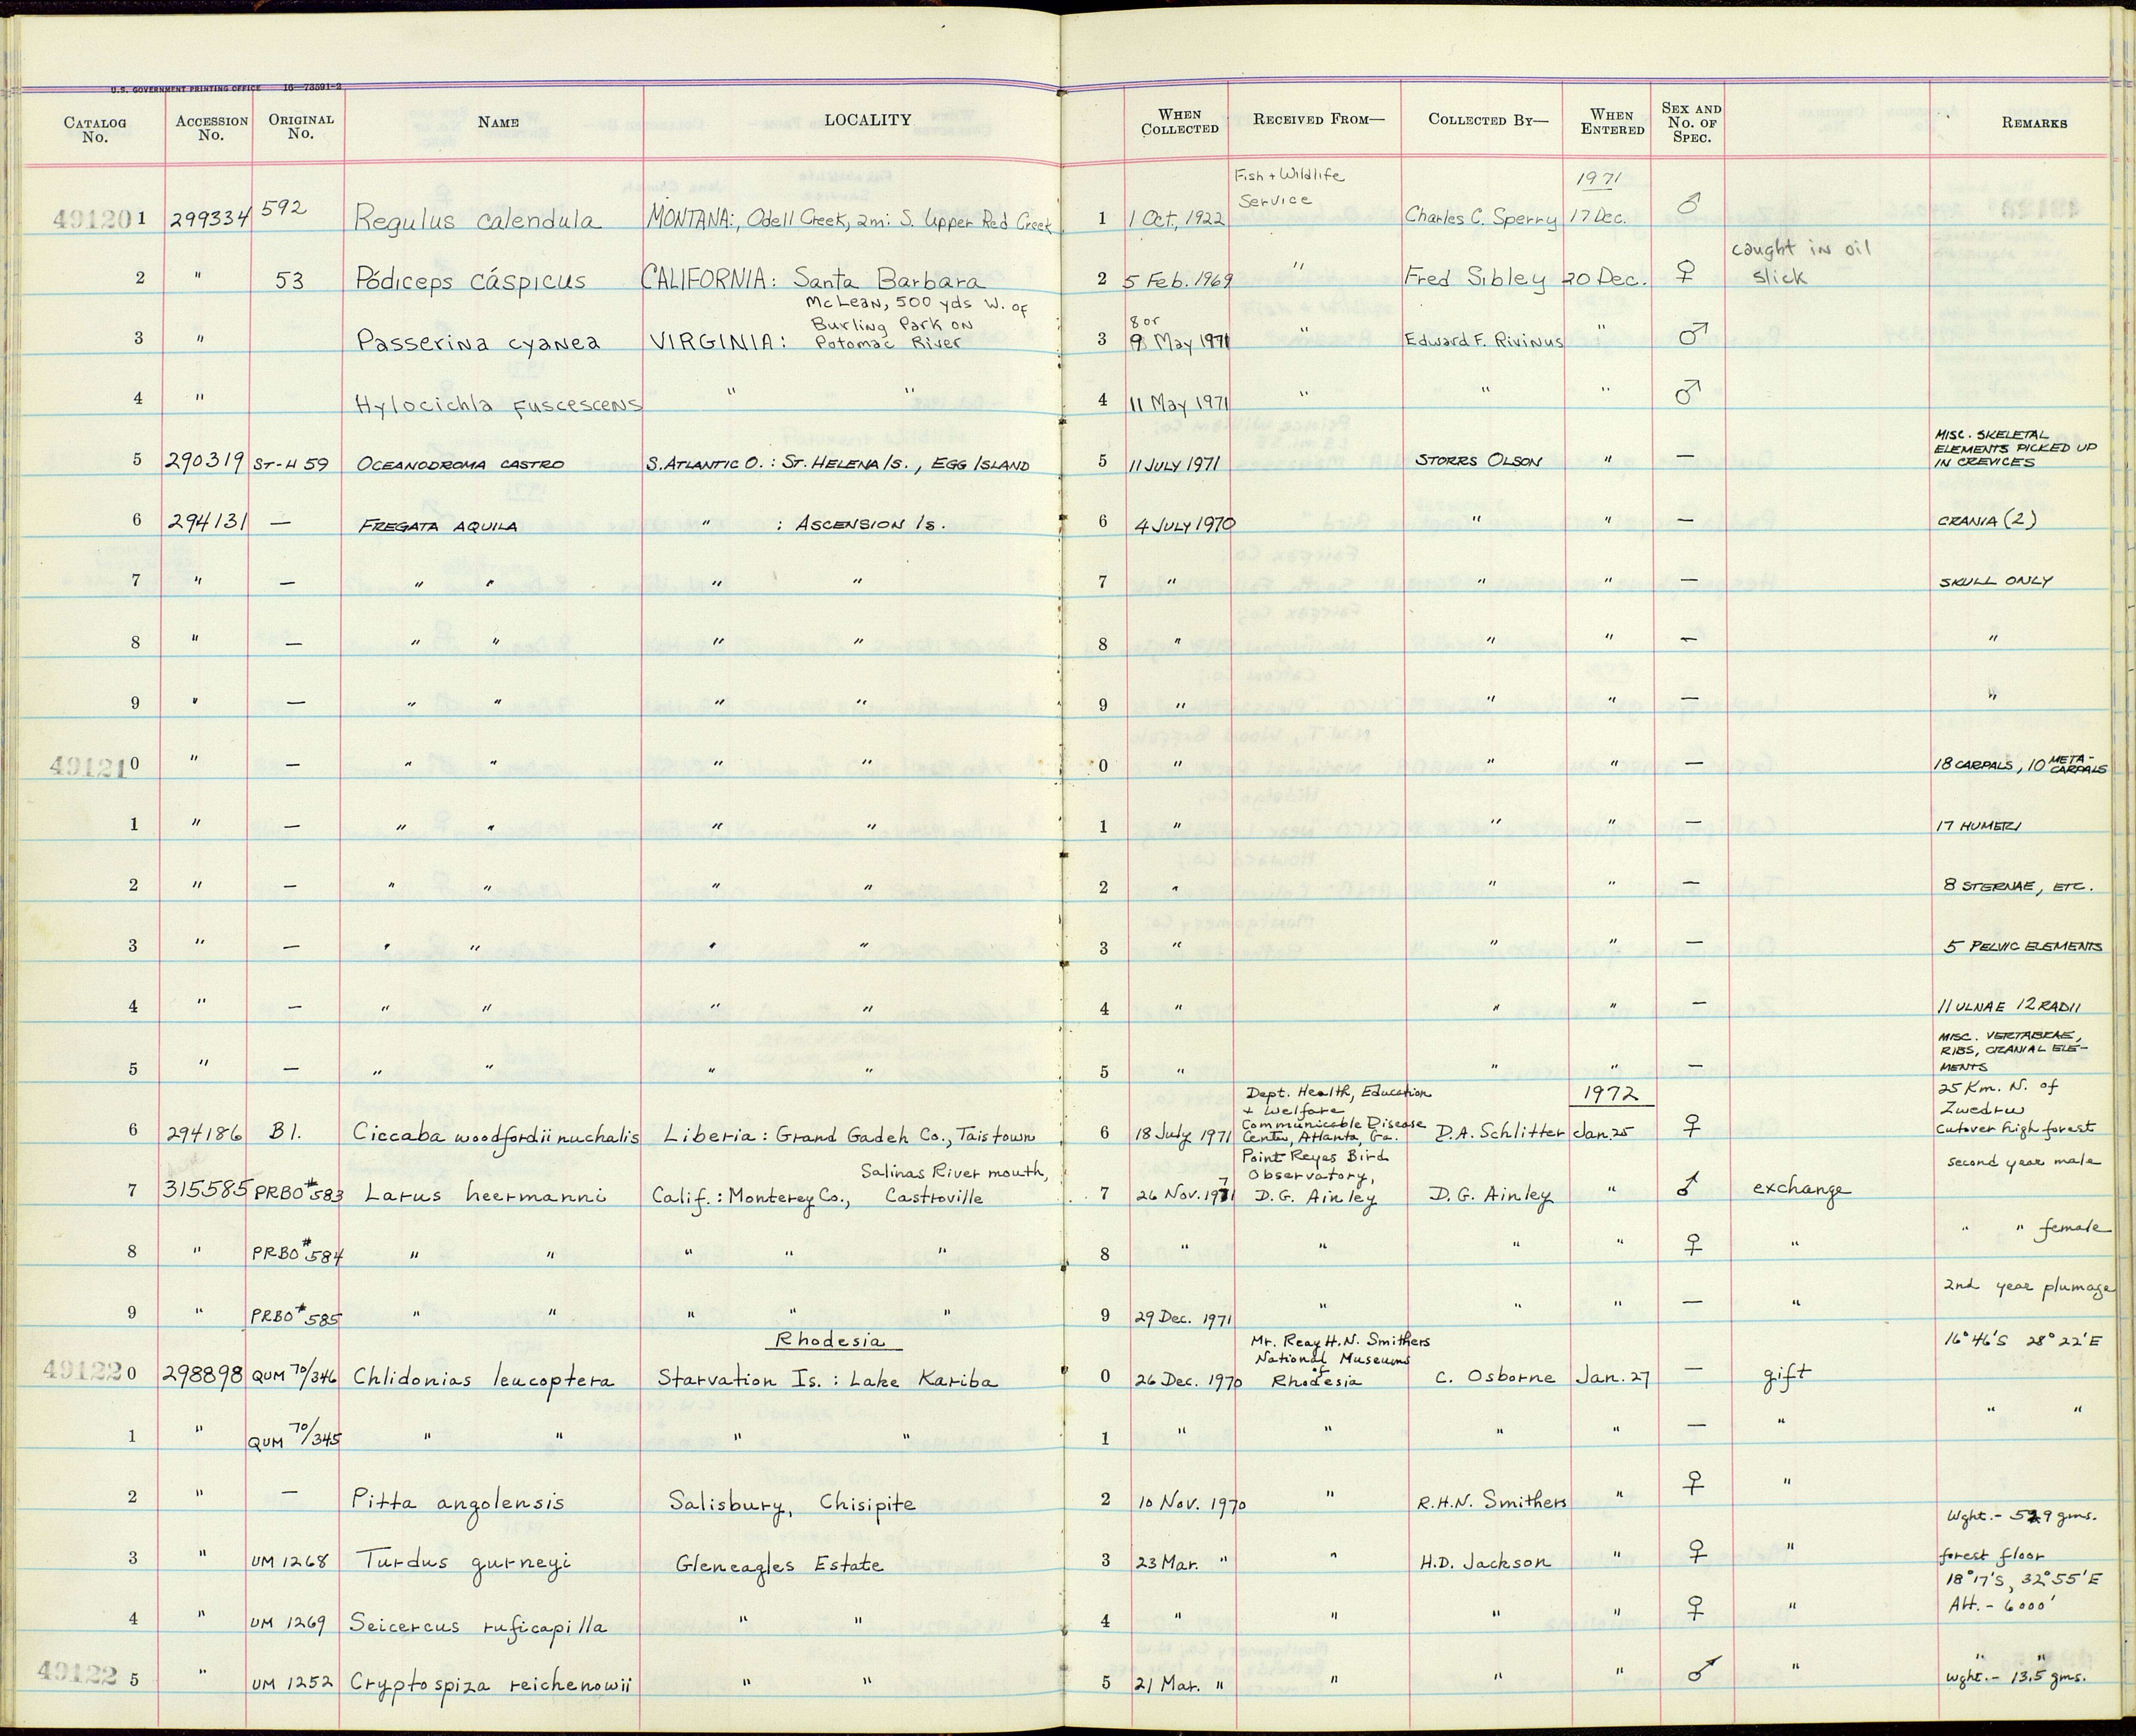 U.S. GOVERNMENT PRINTING OFFICE 16—73591-2
CATALOG No. ACCESSION No. ORIGINAL No. NAME LOCALITY WHEN COLLECTED RECEIVED FROM— COLLECTED BY— WHEN ENTERED SEX AND No. OF SPEC. REMARKS
Fish + Wildlife Service 1971
491201 299334 592 Regulus calendula MONTANA:, Odell Creek, 2mi S. Upper Red Creek 1 1 Oct, 1922 Charles C. Sperry 17 Dec. ♂
2 " 53 Pódiceps cáspicus CALIFORNIA: Santa Barbara 2 5 Feb. 1969 " Fred Sibley 20 Dec. ♀ caught in oil slick
McLean, 500 yds W. of
Burling Park on
3 " Passerina cyanea VIRGINIA: Potomac River 3 8 or 9 May 1971 " Edward F. Rivinus " ♂
4 " Hylocichla fuscescens " " 4 11 May 1971 " " " ♂
5 290319 ST-H 59 OCEANODROMA CASTRO S. ATLANTIC O.: ST. HELENA IS., EGG ISLAND 5 11 JULY 1971 STORRS OLSON " — MISC. SKELETAL ELEMENTS PICKED UP IN CREVICES
6 294131 — FREGATA AQUILA " : ASCENSION IS. 6 4 JULY 1970 " " — CRANIA (2)
7 " — " " " " 7 " " " — SKULL ONLY
8 " — " " " " 8 " " " — "
9 " — " " " " 9 " " " — "
491210 " — " " " " 0 " " " — 18 CARPALS, 10 META-CARPALS
1 " — " " " " 1 " " " — 17 HUMERI
2 " — " " " " 2 " " " — 8 STERNAE, ETC.
3 " — " " " " 3 " " " — 5 PELVIC ELEMENTS
4 " — " " " " 4 " " " — 11 ULNAE 12 RADII
5 " — " " " " 5 " " " — MISC. VERTABRAE, RIBS, CRANIAL ELE-MENTS
1972
6 294186 B1. Ciccaba woodfordii nuchalis Liberia: Grand Gadeh Co., Taistown 6 18 July 1971 Dept. Health, Education + Welfare Communicable Disease Center, Atlanta, Ga. D.A. Schlitter Jan. 25 ♀ 25 Km. N. of Zwedru Cutover high forest
7 315585 PRBO #583 Larus heermanni Calif.: Monterey Co., Salinas River mouth, Castroville 7 26 Nov. 1971 Point Reyes Bird Observatory, D.G. Ainley D.G. Ainley " ♂ exchange second year male
8 " PRBO #584 " " " " " 8 " " " " ♀ " " " female
9 " PRBO #585 " " " " " 9 29 Dec. 1971 " " " — " 2nd year plumage
Rhodesia
491220 298898 QUM 70/346 Chlidonias leucoptera Starvation Is.: Lake Kariba 0 26 Dec. 1970 Mr. Reay H.N. Smithers National Museums of Rhodesia C. Osborne Jan. 27 — gift 16°46'S 28°22'E
1 " QUM 70/345 " " " " 1 " " " " — " " "
2 " — Pitta angolensis Salisbury, Chisipite 2 10 Nov. 1970 " R.H.N. Smithers " ♀ "
3 " UM 1268 Turdus gurneyi Gleneagles Estate 3 23 Mar. " " H.D. Jackson " ♀ " Wght.- gms. forest floor
4 " UM 1269 Seicercus ruficapilla " " 4 " " " " ♀ " 18°17'S, 32°55'E Alt.- 6000'
491225 " UM 1252 Cryptospiza reichenowii " " 5 21 Mar. " " " " ♂ " " " wght.- 13.5 gms.